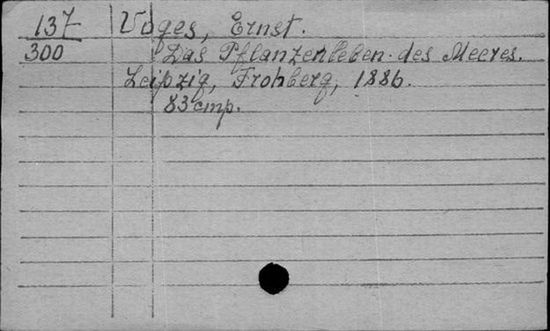 137 Voges, Ernst.
300 Das Pflanzenleben des Meeres.
Leipzig, Frohberg, 1886.
83 стр.